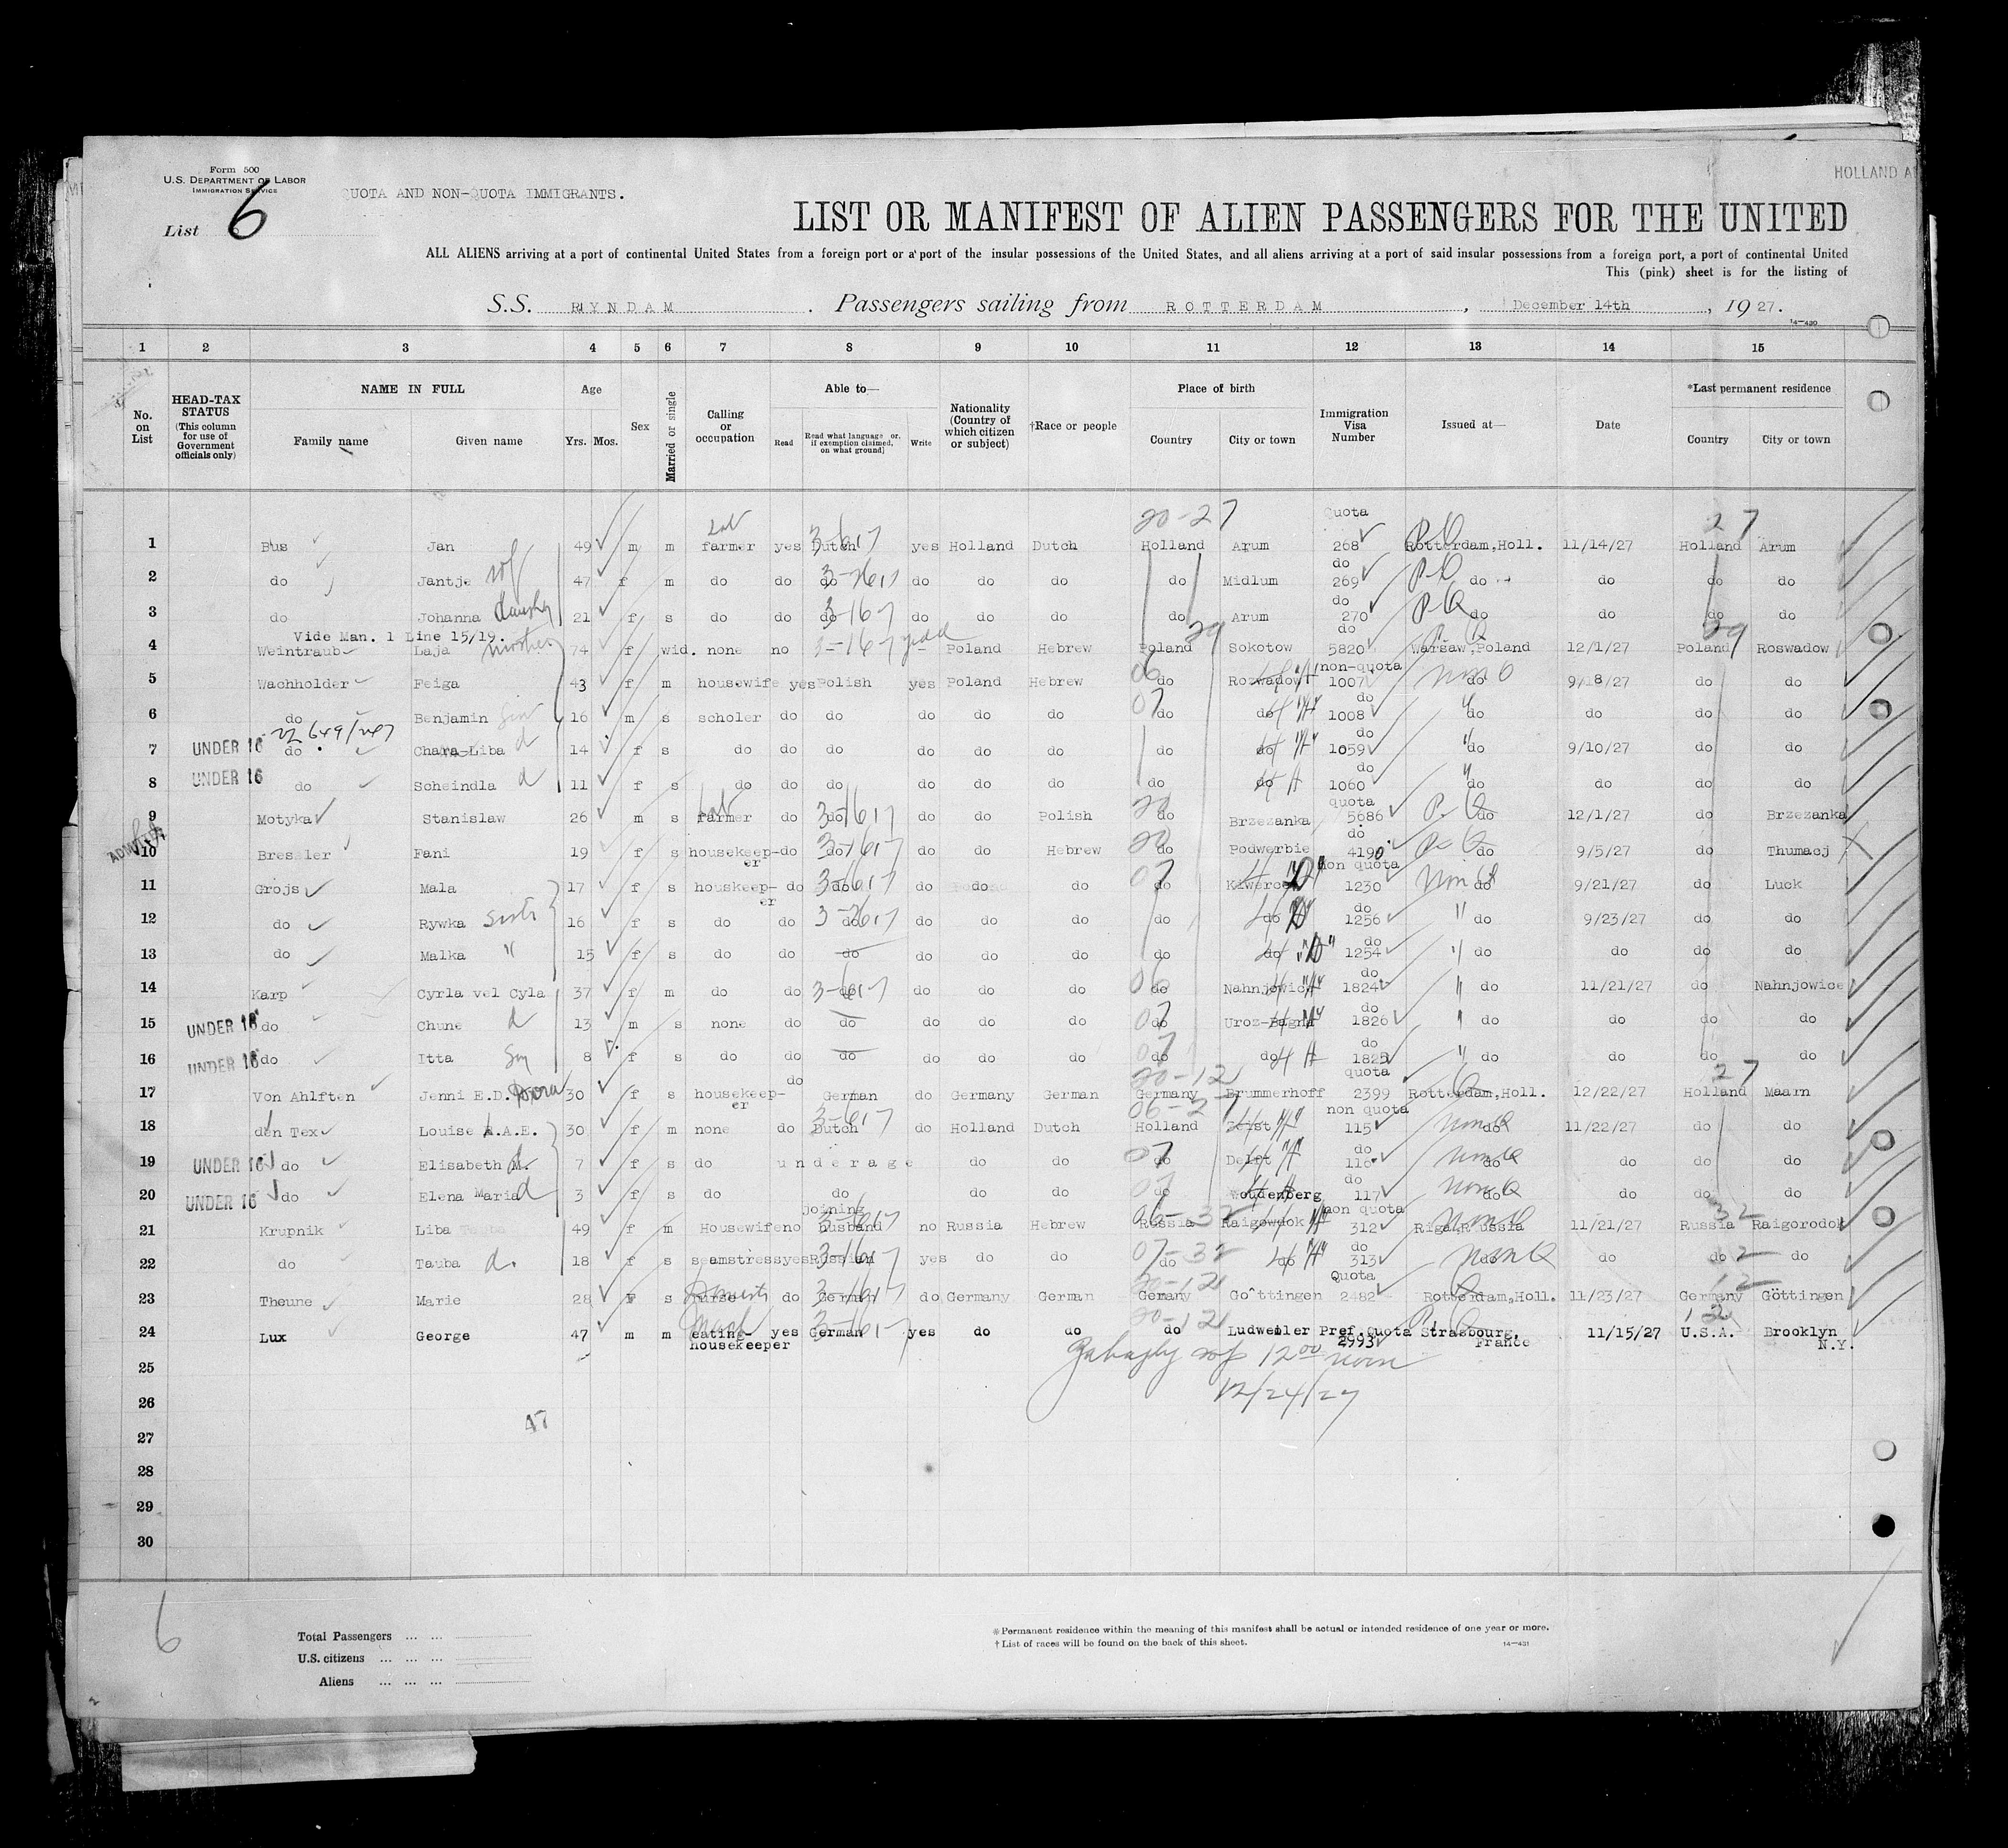 Form 500
U.S. DEPARTMENT OF LABOR
IMMIGRATION SERVICE
QUOTA AND NON-QUOTA IMMIGRANTS.
HOLLAND A
List 6
LIST OR MANIFEST OF ALIEN PASSENGERS FOR THE UNITED
ALL ALIENS arriving at a port of continental United States from a foreign port or a port of the insular possessions of the United States, and all aliens arriving at a port of said insular possessions from a foreign port, a port of continental United
This (pink) sheet is for the listing of
S.S. RYNDAM. Passengers sailing from ROTTERDAM, December 14th, 1927.
14—430
1 2 3 4 5 6 7 8 9 10 11 12 13 14 15
No. on List
HEAD-TAX STATUS (This column for use of Government officials only)
NAME IN FULL Family name Given name
Age Yrs. Mos.
Sex
Married or single
Calling or occupation
Able to— Read Read what language or, if exemption claimed, on what ground) Write
Nationality (Country of which citizen or subject)
†Race or people
Place of birth Country City or town
Immigration Visa Number
Issued at—
Date
*Last permanent residence Country City or town
20-27 Quota 27
1 Bus Jan 49 m m farmer yes Dutch yes Holland Dutch Holland Arum 268 Rotterdam,Holl. 11/14/27 Holland Arum
do
2 do Jantje wf 47 f m do do do do do do do Midlum 269 do do do do
do
3 do Johanna daughter 21 f s do do do do do do do Arum 270 do do do do
Vide Man. 1 Line 15/19. do
4 Weintraub Laja mother 74 f wid. none no - Poland Hebrew Poland Sokotow 5820 Warsaw,Poland 12/1/27 Poland Roswadow
non-quota
5 Wachholder Feiga 43 f m housewife yes Polish yes Poland Hebrew do Rozwadow 1007 do 9/8/27 do do
do
6 do Benjamin Son 16 m s scholer do do do do do do do 1008 do do do do
do
7 UNDER 16 do Chara-Liba d 14 f s do do do do do do do do 1059 do 9/10/27 do do
do
8 UNDER 16 do Scheindla d 11 f s do do do do do do do do 1060 do do do do
quota
9 Motyka Stanislaw 26 m s farmer do do do do Polish do Brzezanka 5686 do 12/1/27 do Brzezanka
do
10 Bressler Fani 19 f s housekeep-er do do do do Hebrew do Podwerbie 4190 do 9/5/27 do Thumacj
non quota
11 Grojs Mala 17 f s houskeep-er do do do do do do 1230 do 9/21/27 do Luck
do
12 do Rywka Sister 16 f s do do do do do do do do 1256 do 9/23/27 do do
do
13 do Malka " 15 f s do do do do do do do do 1254 do do do do
do
14 Karp Cyrla vel Cyla 37 f m do do do do do do do Nahnjowice 1824 do 11/21/27 do Nahnjowice
do
15 UNDER 16 do Chune d 13 m s none do do do do do do 1826 do do do do
do
16 UNDER 16 do Itta Son 8 f s do do do do do do do do 1825 do do do do
quota
17 Von Ahlften Jenni E.D. Dora 30 f s housekeep-er do German do Germany German Germany Brummerhoff 2399 Rotterdam,Holl. 12/22/27 Holland Maarn
non quota
18 den Tex Louise A.A.E. 30 f m none do Dutch do Holland Dutch Holland Zeist 115 do 11/22/27 do do
do
19 UNDER 16 do Elisabeth M. 7 f s do underage do do do Delft 116 do do do do
do
20 UNDER 16 do Elena Maria d 3 f s do do do do do Woudenberg 117 do do do do
joining non quota
21 Krupnik Liba 49 f m Housewife no husband no Russia Hebrew Russia Raigowdok 312 Riga,Russia 11/21/27 Russia Raigorodok
do
22 do Tauba d. 18 f s seamstress yes Russian yes do do do do 313 do do do do
Quota
23 Theune Marie 28 F s nurse do German do Germany German Gemany Go^ttingen 2482 Rotterdam,Holl. 11/23/27 Germany Göttingen
24 Lux George 47 m m eating-housekeeper yes German yes do do do Ludweiler Pref.Quota 2993 Strasbourg, France 11/15/27 U.S.A. Brooklyn N.Y.
25
12/24/27
26
27
28
29
30
6
Total Passengers ... ...
U.S. citizens ... ... ...
Aliens ... ... ...
*Permanent residence within the meaning of this manifest shall be actual or intended residence of one year or more.
†List of races will be found on the back of this sheet.
14—431